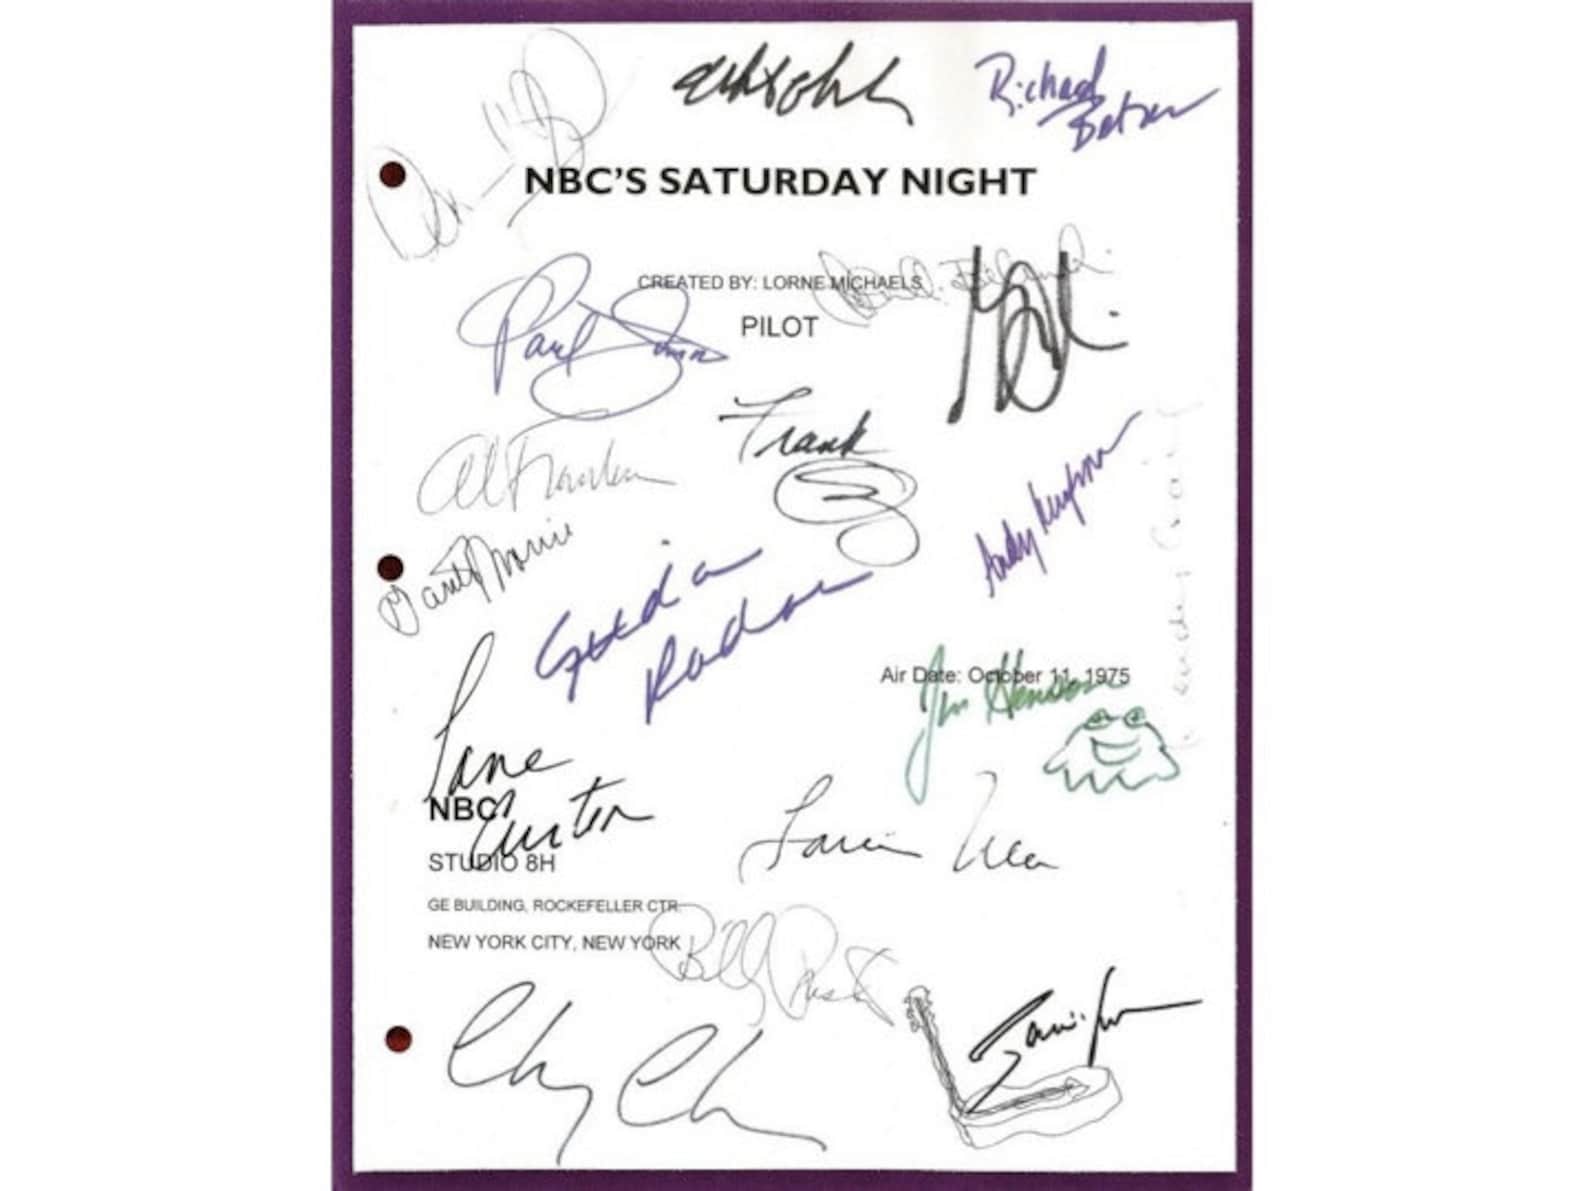 Richard Belzer
NBC'S SATURDAY NIGHT
CREATED BY: LORNE MICHAELS
PILOT
Paul Simon
Al Franken
Frank
Garrett Morris
Andy Kaufman
Gilda
Radner
Air Date: October 11, 1975
Jim Henson
Jane
Curtin
NBC
STUDIO 8H
Laraine
GE BUILDING, ROCKEFELLER CTR.
NEW YORK CITY, NEW YORK
Billy Preston
Chevy Chase
Janis Ian